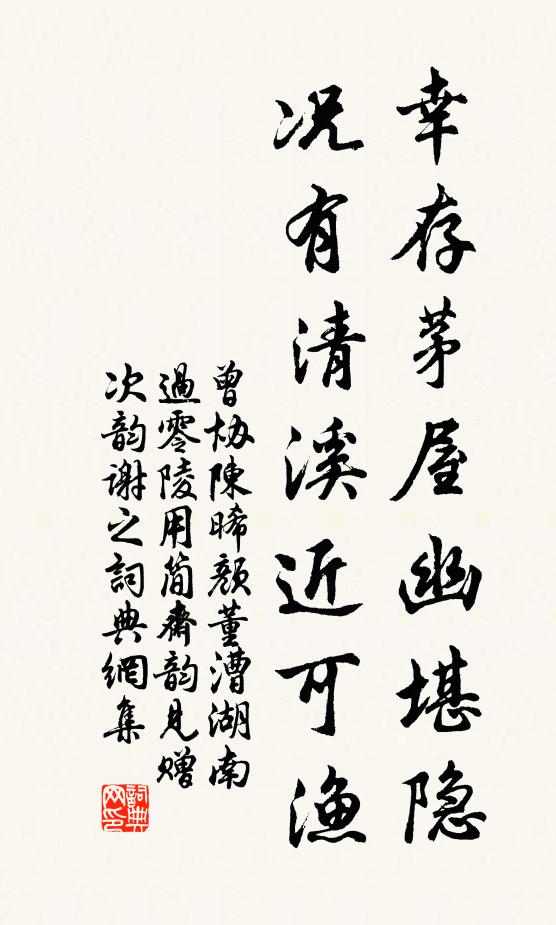 幸存茅屋幽堪隐
况有清溪近可渔
曾协陳晞颜董漕湖南
過零陵用简齋韵见赠
次韵谢之詞典網集
詞典网印